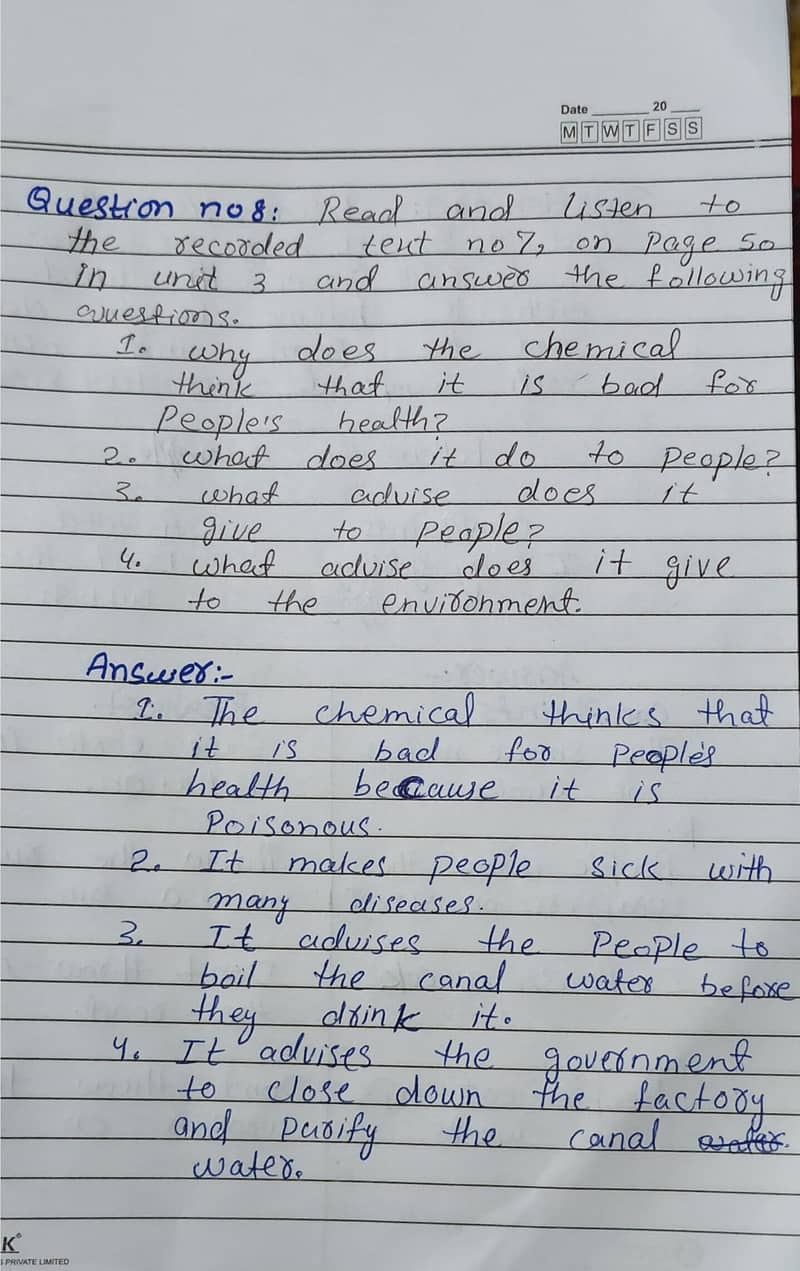 Date ________ 20 ____
M T W T F S S
Question no 8: Read and listen to
the recorded text no 7, on Page 50
in unit 3 and answer the following
questions.
1. why does the chemical
think that it is bad for
People's health?
2. what does it do to people?
3. what advise does it
give to people?
4. what advise does it give
to the environment.
Answer:-
1. The chemical thinks that
it is bad for people's
health because it is
Poisonous.
2. It makes people sick with
many diseases.
3. It advises the People to
boil the canal water before
they drink it.
4. It advises the government
to close down the factory
and purify the canal water.
water.
K
PRIVATE LIMITED